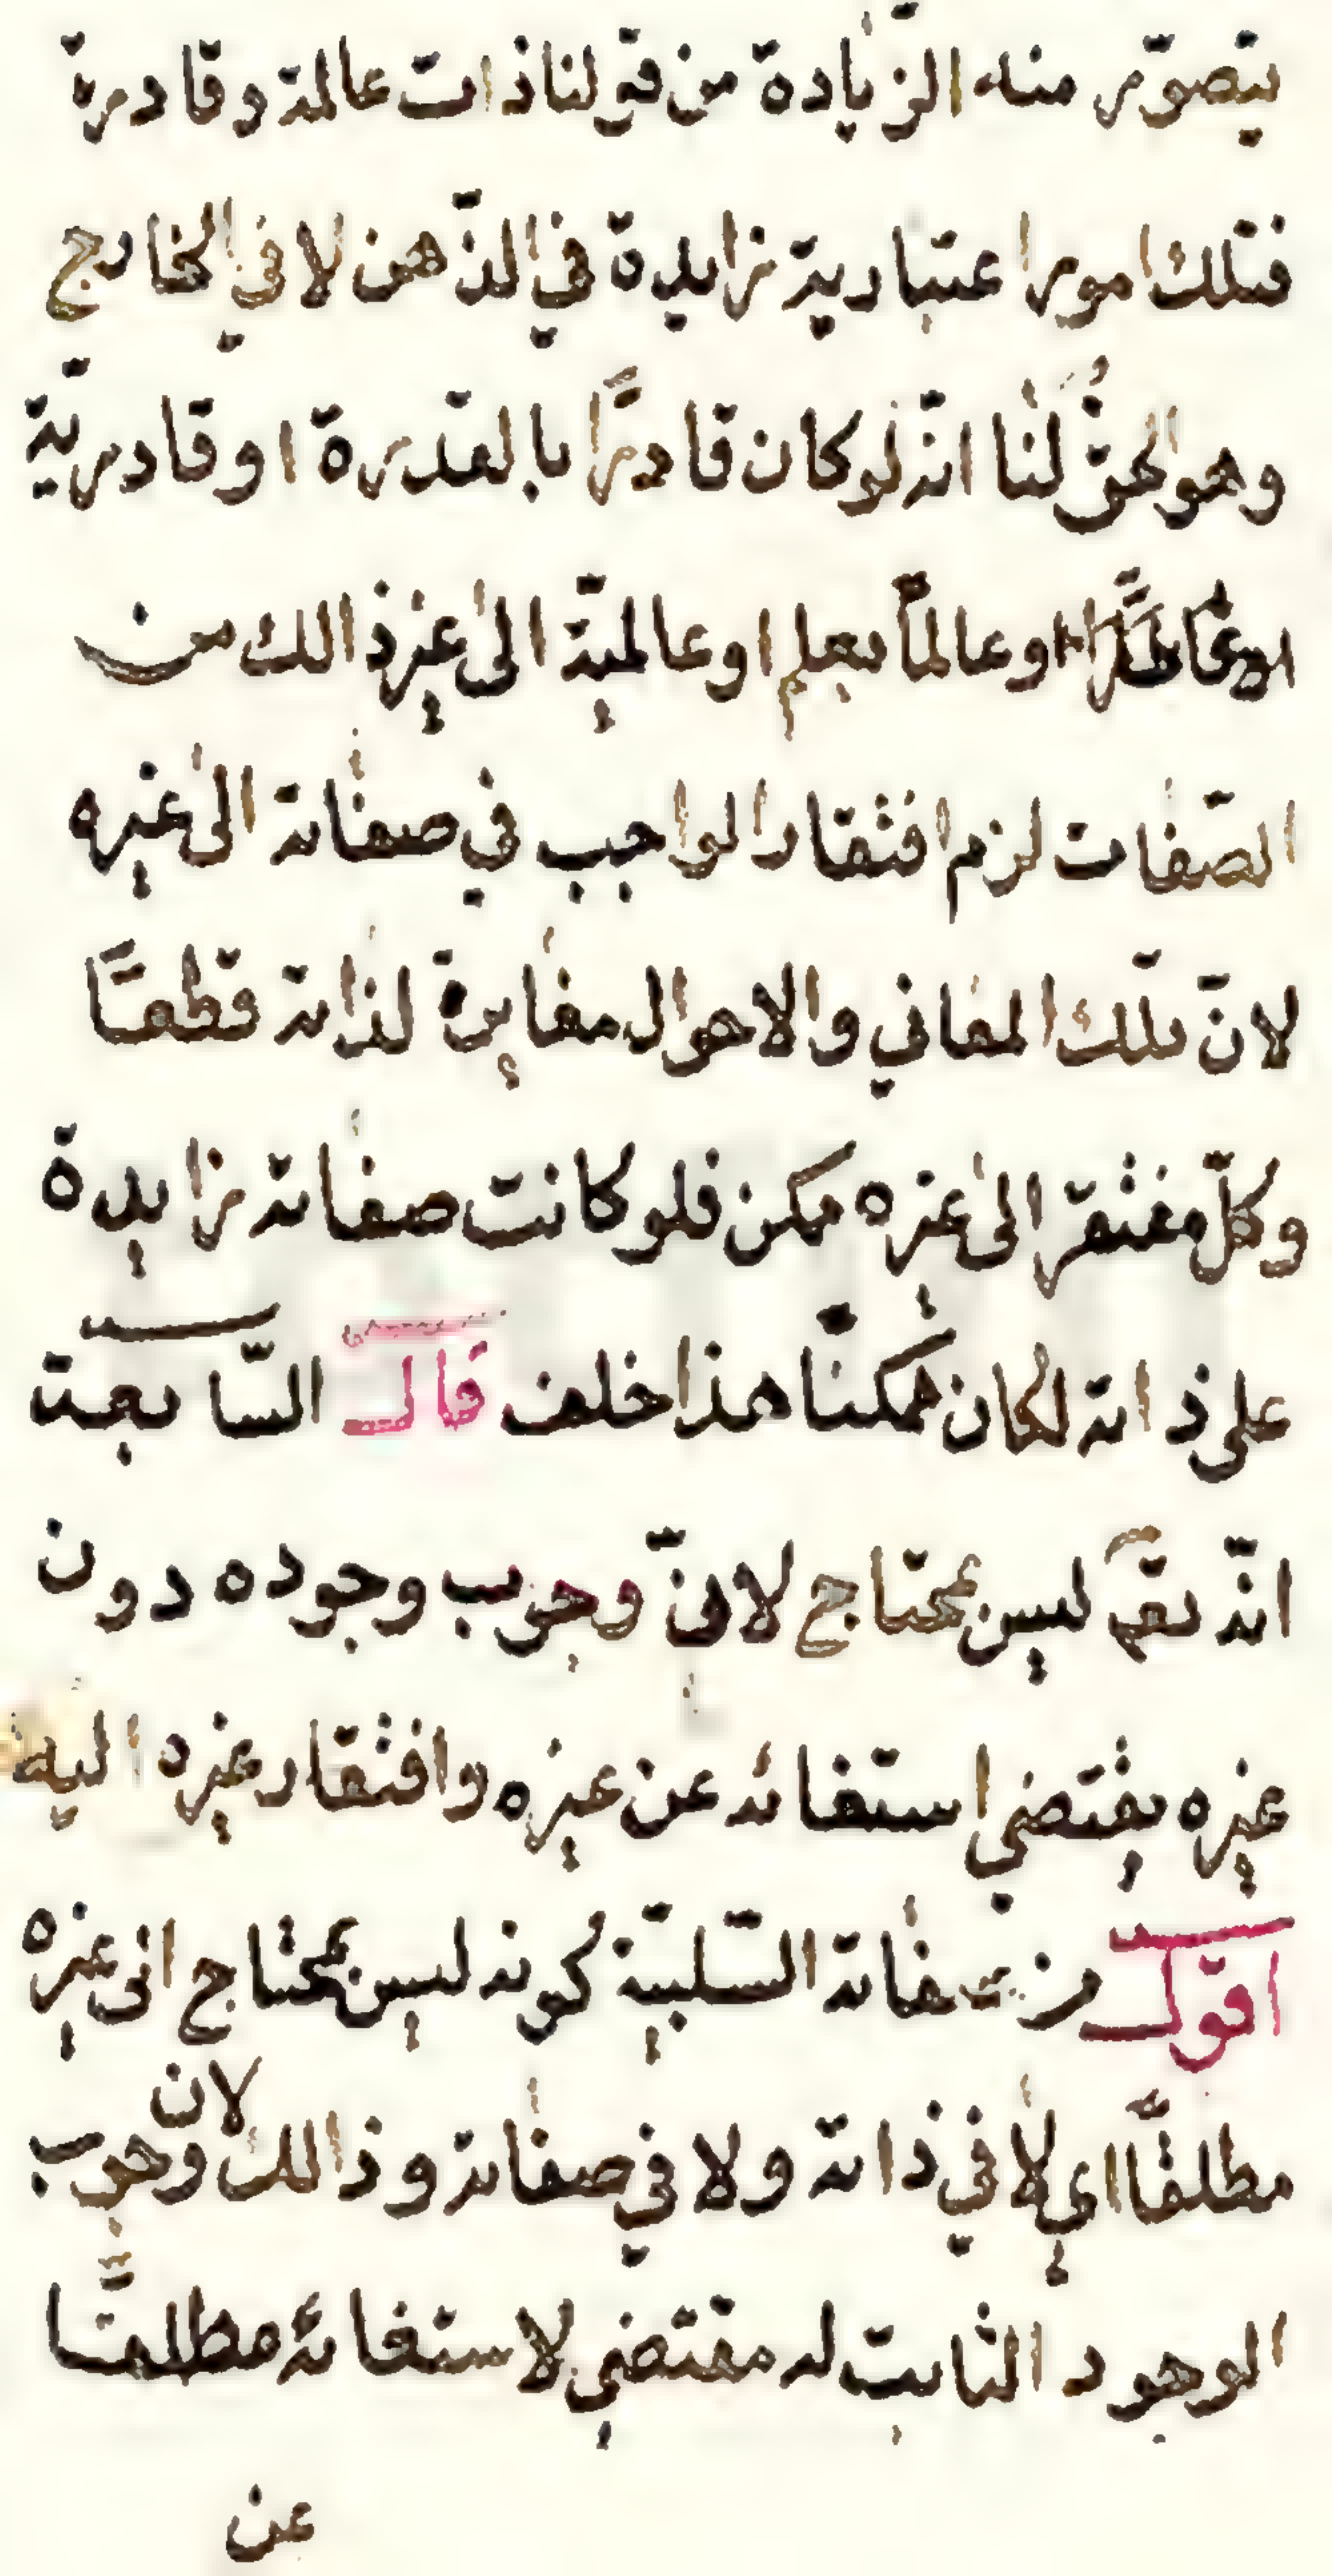 يتصوّر منه الزّيادة من قولنا ذات عالمة وقادرة
فتلك امور اعتبارية زايدة في الذّهن لا في الخارج
وهو الحقّ لنا انّه لو كان قادرًا بالقدرة او قادريّة
او عالمًا بعلم او عالميّة الى غير ذالك من
الصّفات لزم افتقار الواجب في صفاته الى غيره
لانّ تلك المعاني والاحوال مغايرة لذاته قطعًا
وكلّ مفتقر الى غيره ممكن فلو كانت صفاته زايدة
على ذاته لكان ممكنًا هذا خلف قال السّابعة
انّه تعّ ليس بمحتاج لانّ وجوب وجوده دون
غيره يقتضي استغنائه عن غيره وافتقار غيره اليه
اقول من صفاته السّلبيّة كونه ليس بمحتاج الى غيره
مطلقًا اي لا في ذاته ولا في صفاته وذالك لان وجوب
الوجود الثابت له مقتضي لاستغنائه مطلقًا
عن